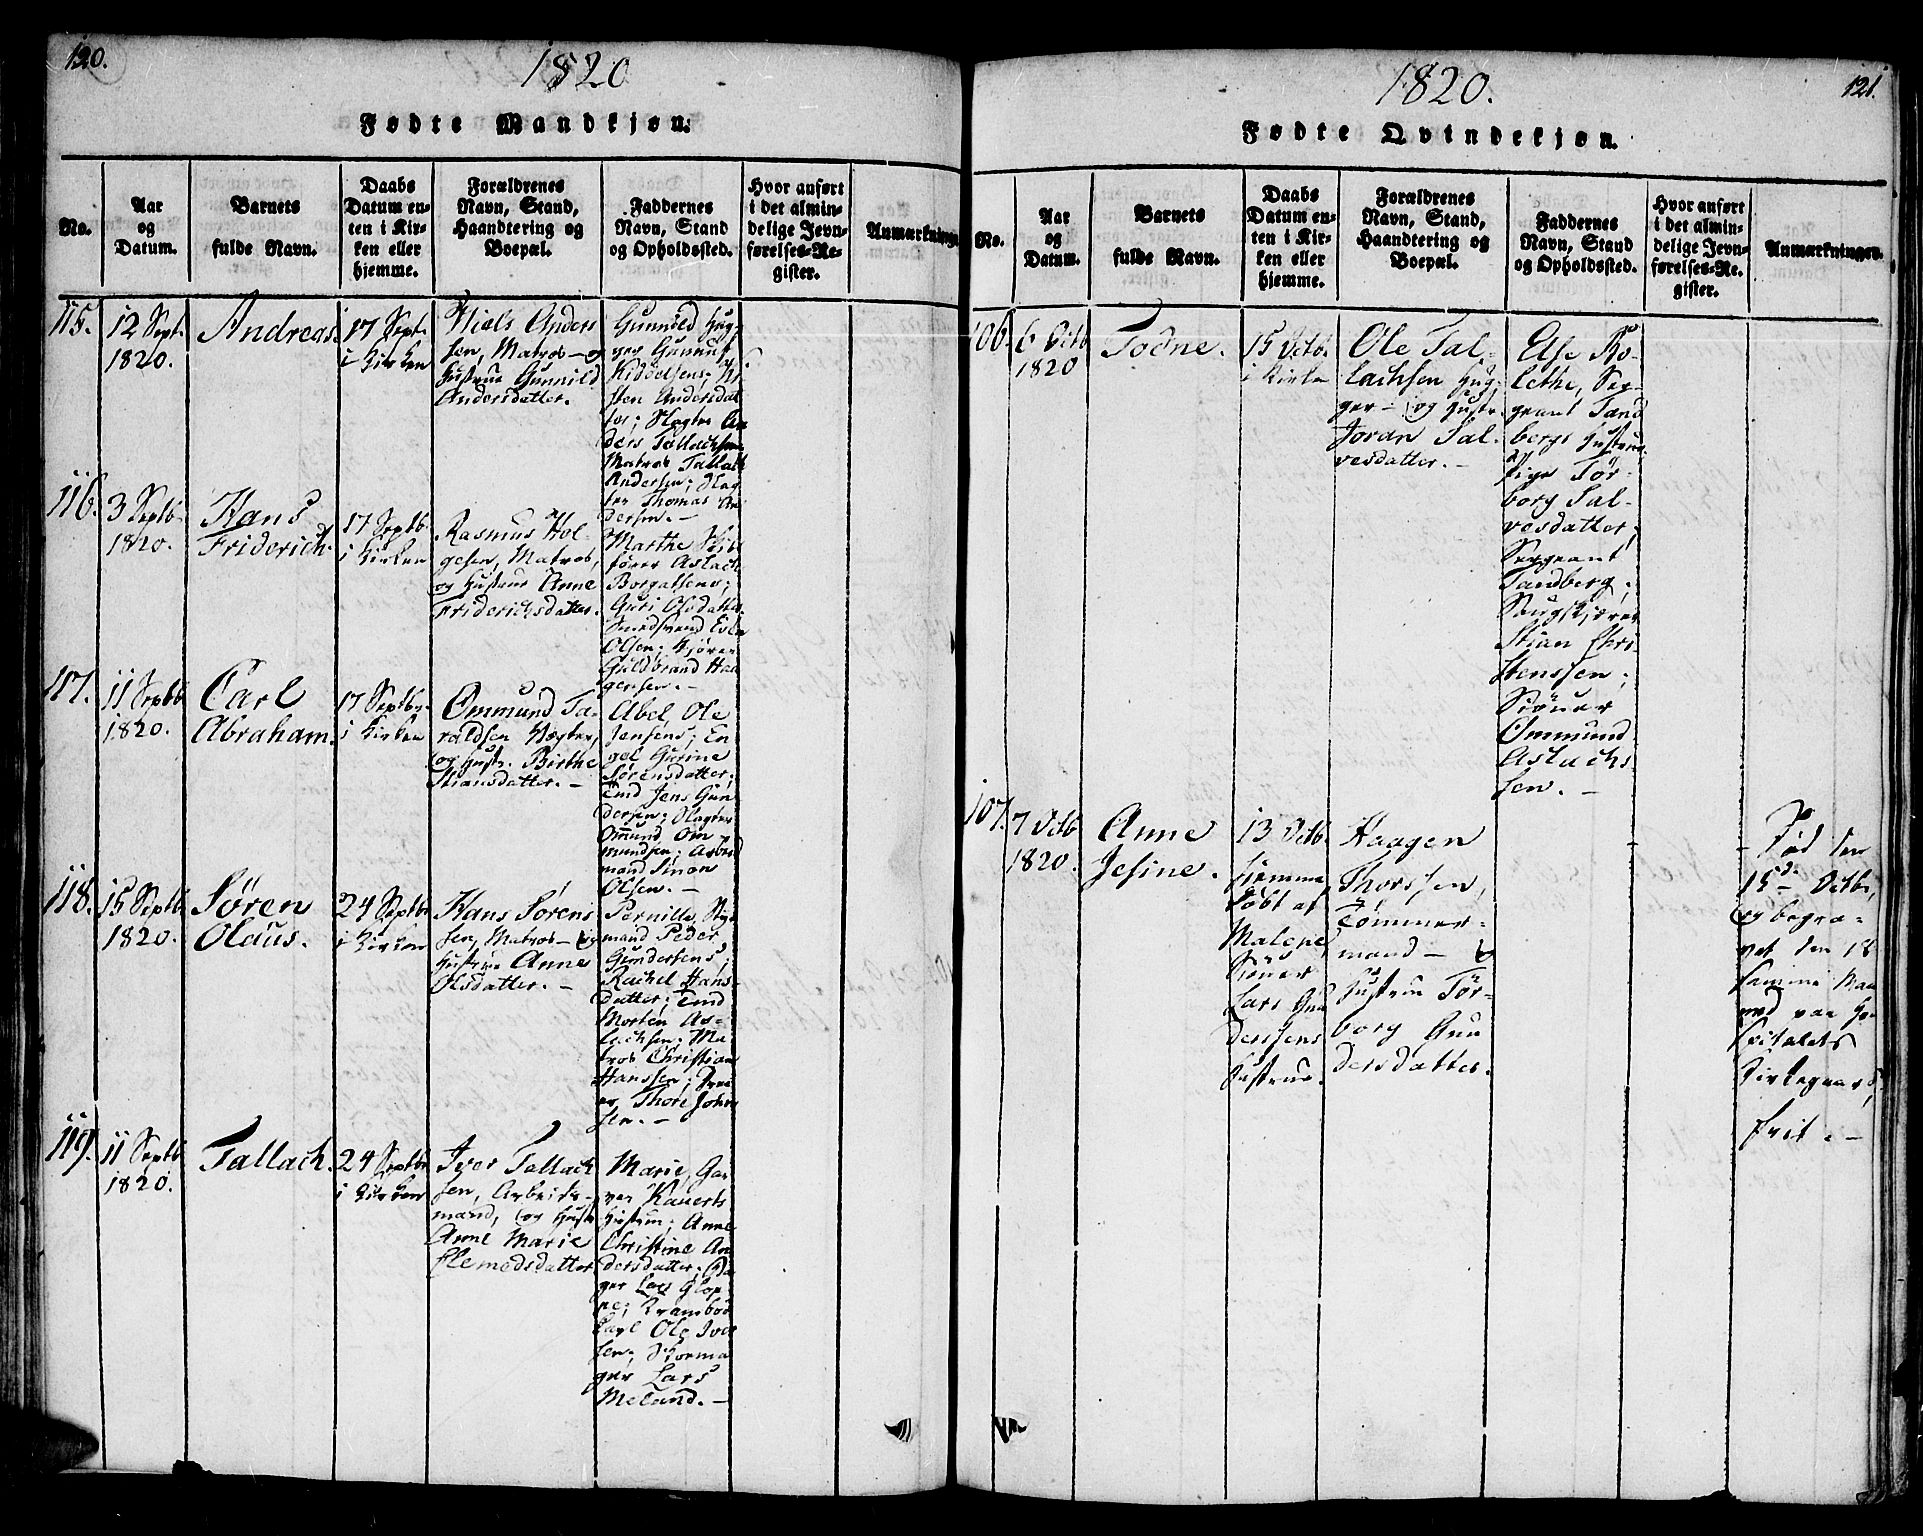 120.
1820
Fødte Mandkjøn.
No.
Aar
og
Datum.
Barnets
fulde Navn.
Daabs
Datum en-
ten i Kir-
ken eller
hjemme.
Forældrenes
Navn, Stand,
Haandtering og
Boepæl.
Faddernes
Navn, Stand
og Opholdssted.
Hvor anført
i det almin-
delige Jevn-
førelses-Re-
gister.
Anmærkninge.
115.
12 Sept.
1820.
Andreas
17 Sept.
i Kirken
Niels Anders
sen, Matros – og
Hustrue Gunnild
Andersdatter.
Gunnild
Gunnuf
Kidoelsens;
sten Andersdat
ter; Slagter An
ders Tallachsen
Matros Tallak
Andersen; Slag
ter Thomas An
dersen. –
116.
3 Septb.
1820.
Hans
Friderich.
17 Septb.
i Kirken
Rasmus Hol-
gesen, Matros,
og Hustrue Anne
Friderichsdatter.
Marthe
Aslach
Borgalsens;
Guri Olsdatter
Smedsvend
Olsen;
Guldbrand Haa
gensen. –
117.
11 Septb
1820.
Carl
Abraham.
17 Septbr.
i Kirken
Ommund Ta-
raldsen Vægter,
og Hustr. Birthe
Stiansdatter. –
Abel, Ole
Jensens; En
gel Gurine
Sørensdatter;
Tind Jens Gun
dersen; Slagter
Ommund Om
mundsen; Arbeid
mand Simon
Olsen. –
118.
15 Septb.
1820.
Søren
Olaus.
24 Septbr
i Kirken
Hans Sørens
sen, Matros – og
Hustrue Anne
Olsdatter. –
Pernille, Sty
mand Peder
Gundersens;
Rachel Hans-
datter; Tind
Morten As-
lachsen; Ma-
tros Christian
Hanssen;
Thore John
sen. –
119.
11 Septb
1820.
Tallach.
24 Septbr
i Kirken
Iver Tallach
sen, Arbeids-
mand, og Hustr
Anne Marie
Clemedsdatter
Marie, Gar
ver Kauerts
Hustrue; Anne
Christine An
dersdatter; Ba
ger Lars Glop-
pe; Krambod
Carl Ole Iver
sen; Skoma
ger Lars
Meland. –
121.
1820.
Fødte Qvindekjøn.
No.
Aar
og
Datum.
Barnets
fulde Navn.
Daabs
Datum en-
ten i Kir-
ken eller
hjemme.
Forældrenes
Navn, Stand,
Haandtering og
Boepæl.
Faddernes
Navn, Stand
og Opholdssted.
Hvor anført
i det almin-
delige Jevn-
førelses-Re-
gister.
Anmærkninger.
106.
6 Octb
1820
Todne.
15 Octb.
i Kirken
Ole Tal-
lachsen
– og Hustr.
Joran Sal-
vesdatter. –
Else Ro-
lethe, Ser-
geant Tand
bergs Hustrue
Pige Tør-
borg Sal-
vesdatter;
Sergeant
Tandberg;
Stian Chri
stenssen;
Skøner
Ommund
Aslachs-
sen. –
107.
7 Octb
1820.
Anne
Jesine.
13 Octb.
hjemme
døbt af
Malene,
Skøner
Lars Gun
derssens
Hustrue.
Haagen
Thorssen,
Tømmer-
mand – og
Hustrue Tør-
borg Gun
dersdatter.
– Død den
15de Octbr,
og begra-
vet den 18
samme Maa
ned paa Ho
spitalets
Kirkegaard,
frit. –